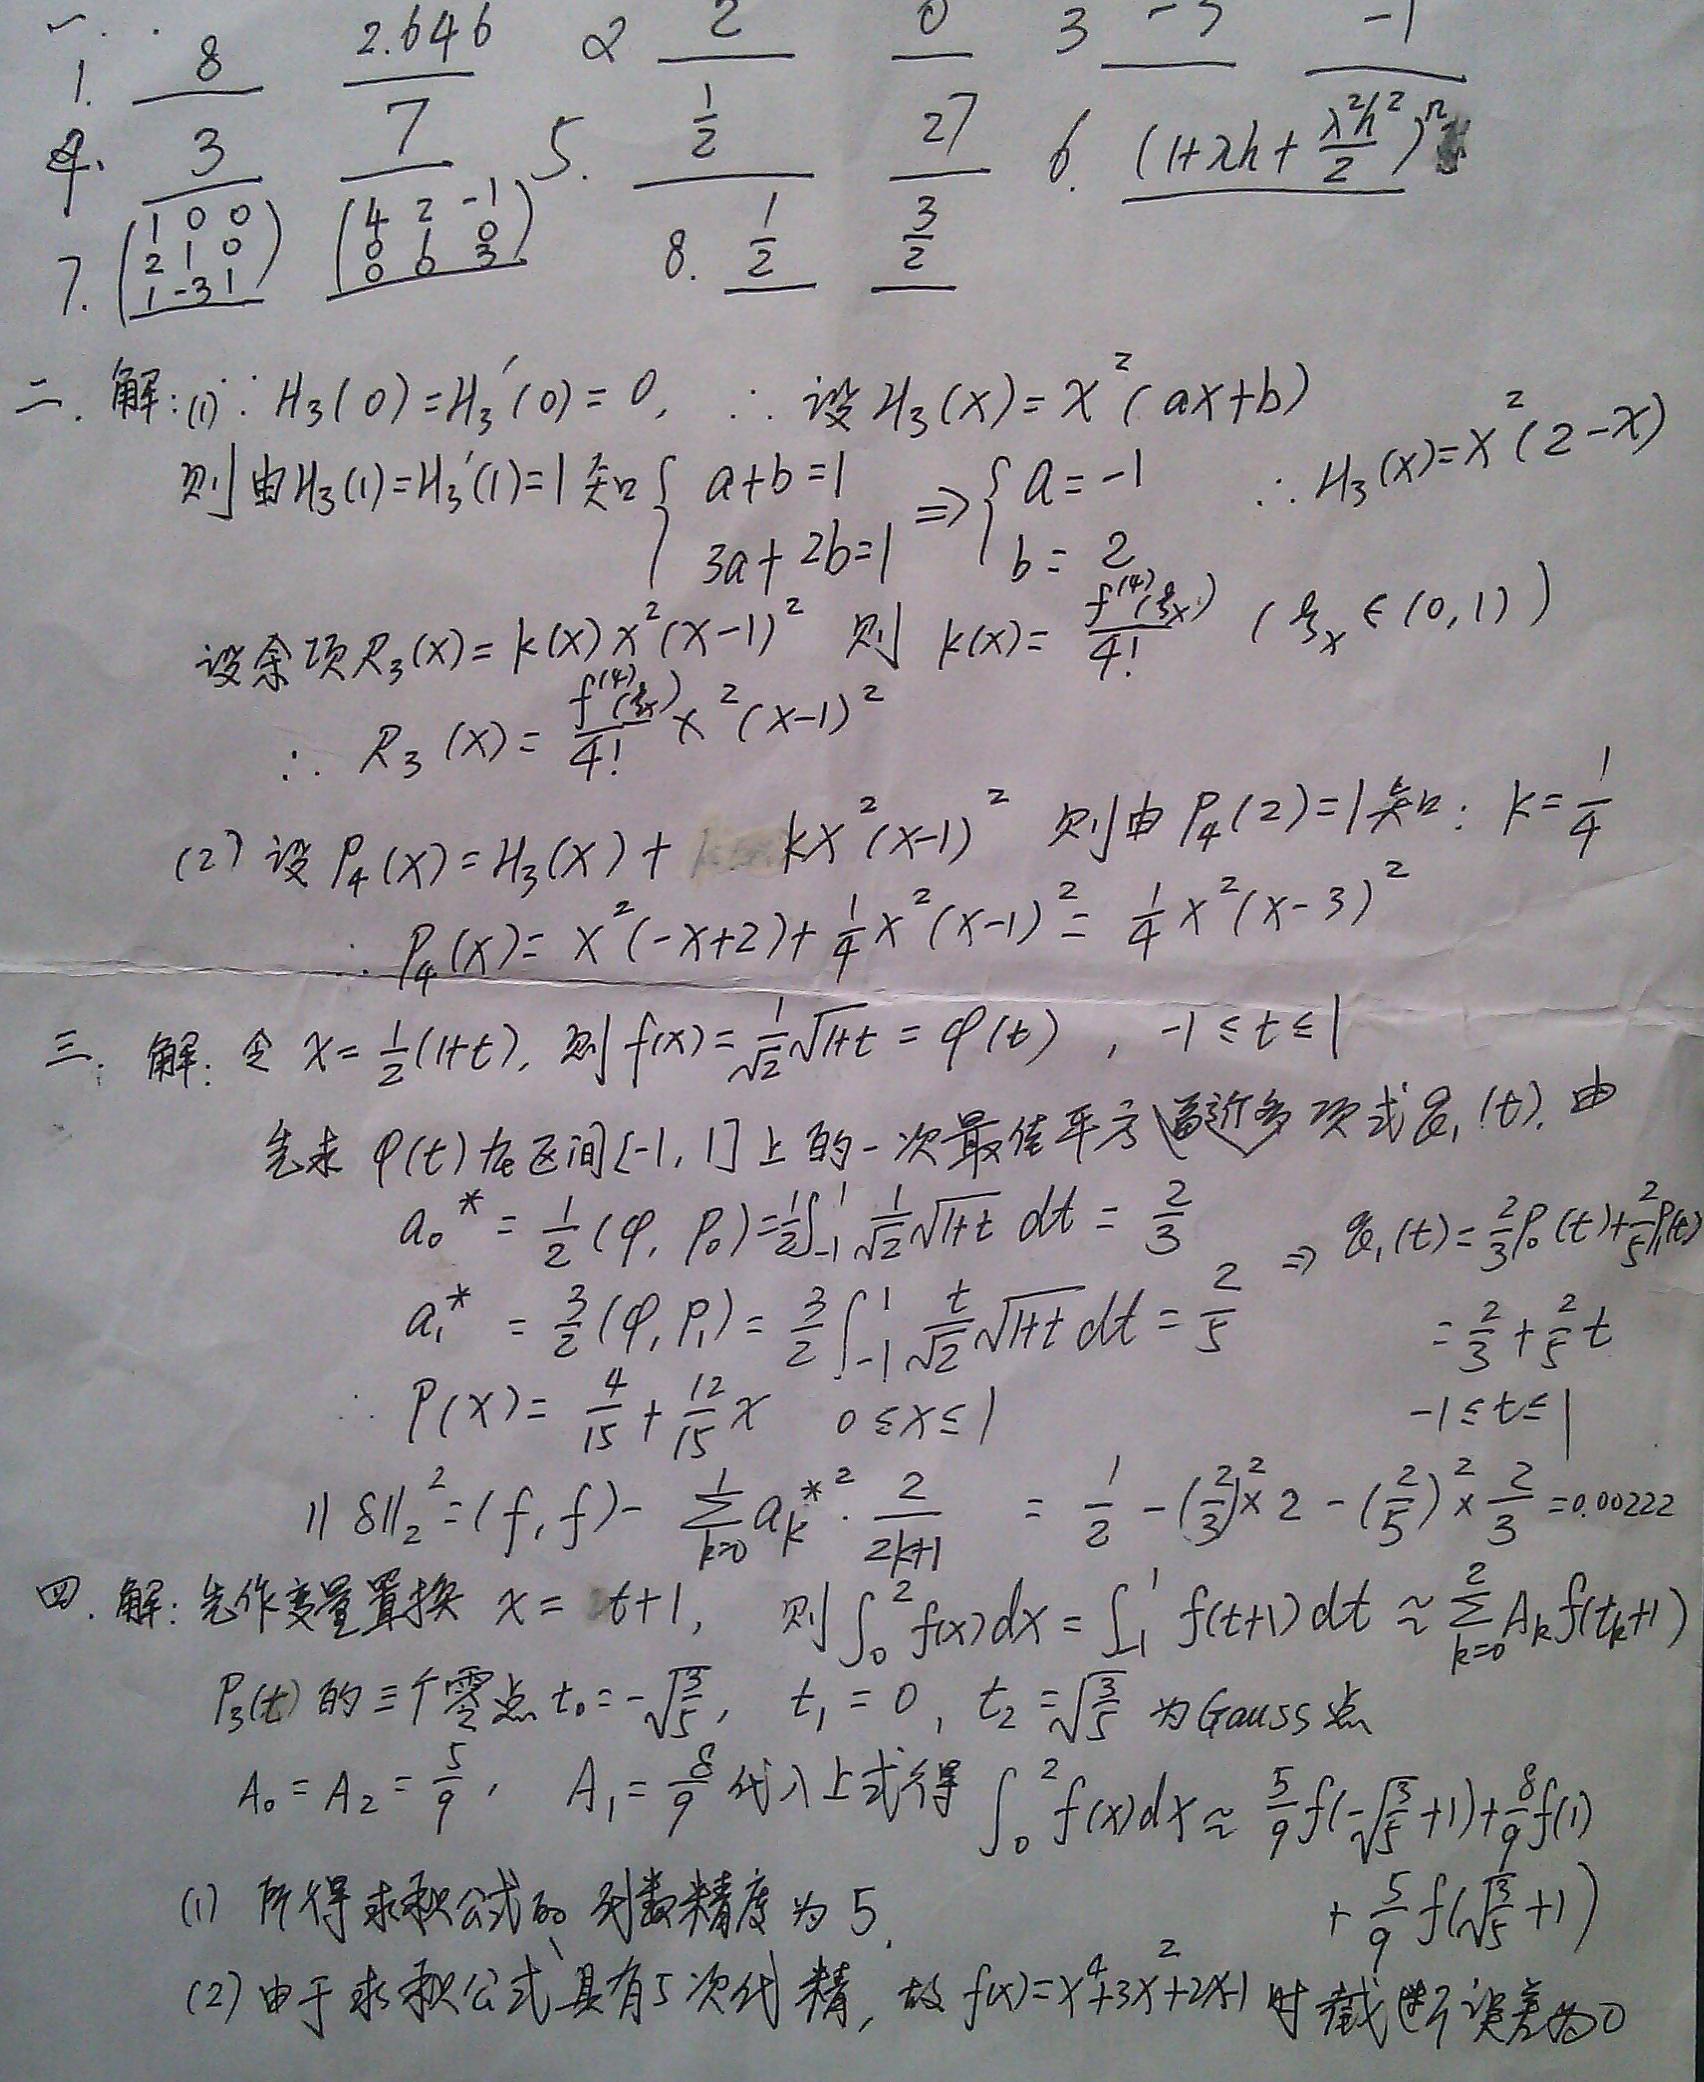 一.
1. 8 2.646 2 2 0 3 -1
4. 3 7 5. 1/2 27 6. (1+λh+λ²h²/2)ⁿ
7. (1 0 0 (4 2 -1 8. 1/2 3/2
2 1 0 0 0
1 -3 1) 0 0 3)
二. 解:(1) ∵ H₃(0)=H₃′(0)=0, ∴ 设H₃(x)=x²(ax+b)
则由H₃(1)=H₃′(1)=1知 { a+b=1 3a+2b=1 ⇒ { a=-1 b=2 ∴ H₃(x)=x²(2-x)
设余项R₃(x)=k(x)x²(x-1)² 则 k(x)=f⁽⁴⁾(ξₓ)/4! (ξₓ∈(0,1))
∴ R₃(x)=f⁽⁴⁾(ξₓ)/4! x²(x-1)²
(2) 设P₄(x)=H₃(x)+kx²(x-1)² 则由P₄(2)=1知: k=1/4
∴ P₄(x)=x²(-x+2)+1/4x²(x-1)²=1/4x²(x-3)²
三. 解: 令 x=1/2(1+t), 则f(x)=1/√2√1+t=φ(t), -1≤t≤1
先求φ(t)在区间[-1,1]上的一次最佳平方逼近多项式q₁(t). 由
a₀*=1/2(φ,P₀)=1/2∫₋₁¹ 1/√2 √1+t dt=2/3 ⇒ q₁(t)=2/3P₀(t)+2/5P₁(t)
a₁*=3/2(φ,P₁)=3/2∫₋₁¹ t/√2 √1+t dt=2/5 =2/3+2/5t
∴ P(x)=4/15+12/15x 0≤x≤1 -1≤t≤1
‖δ‖₂²=(f,f)-∑ₖ₌₀¹aₖ*²·2/(2k+1) =1/2-(2/3)²×2-(2/5)²×2/3=0.00222
四. 解: 先作变量置换 x=t+1, 则∫₀²f(x)dx=∫₋₁¹f(t+1)dt≈∑ₖ₌₀²Aₖf(tₖ+1)
P₃(t)的三个零点t₀=-√3/5, t₁=0, t₂=√3/5 为Gauss点
A₀=A₂=5/9, A₁=8/9代入上式得 ∫₀²f(x)dx≈5/9f(-√3/5+1)+8/9f(1)
+5/9f(√3/5+1)
(1) 所得求积公式的代数精度为5.
(2) 由于求积公式具有5次代精, 故f(x)=x⁴+3x²+2x-1时截断误差为0